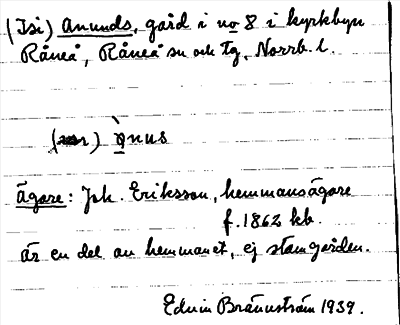 (Isi) Anunds, gård i no 8 i kyrkbyn
Råneå, Råneå sn och tg, Norrb. l.
ònus
Ägare: Joh. Eriksson, hemmansägare
f. 1862 kb.
är en del av hemmanet, ej stamgården.
Edvin Brännström 1939.